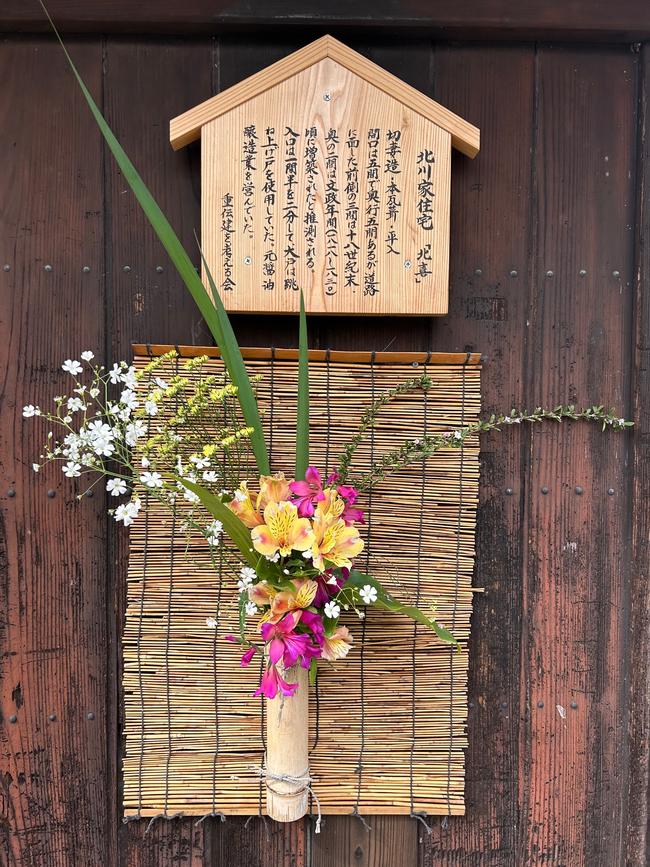 北川家住宅 「北喜」
切妻造・本瓦葺・平入
間口は五間で奥行五間あるが道路
に面した前側の三間は十八世紀末・
奥の二間は文政年間(一八一八-一八三〇)
頃に増築されたと推測される。
入口は一間半を二分して大戸は跳
ね上げ戸を使用していた。元醤油
醸造業を営んでいた。
重伝建を考える会